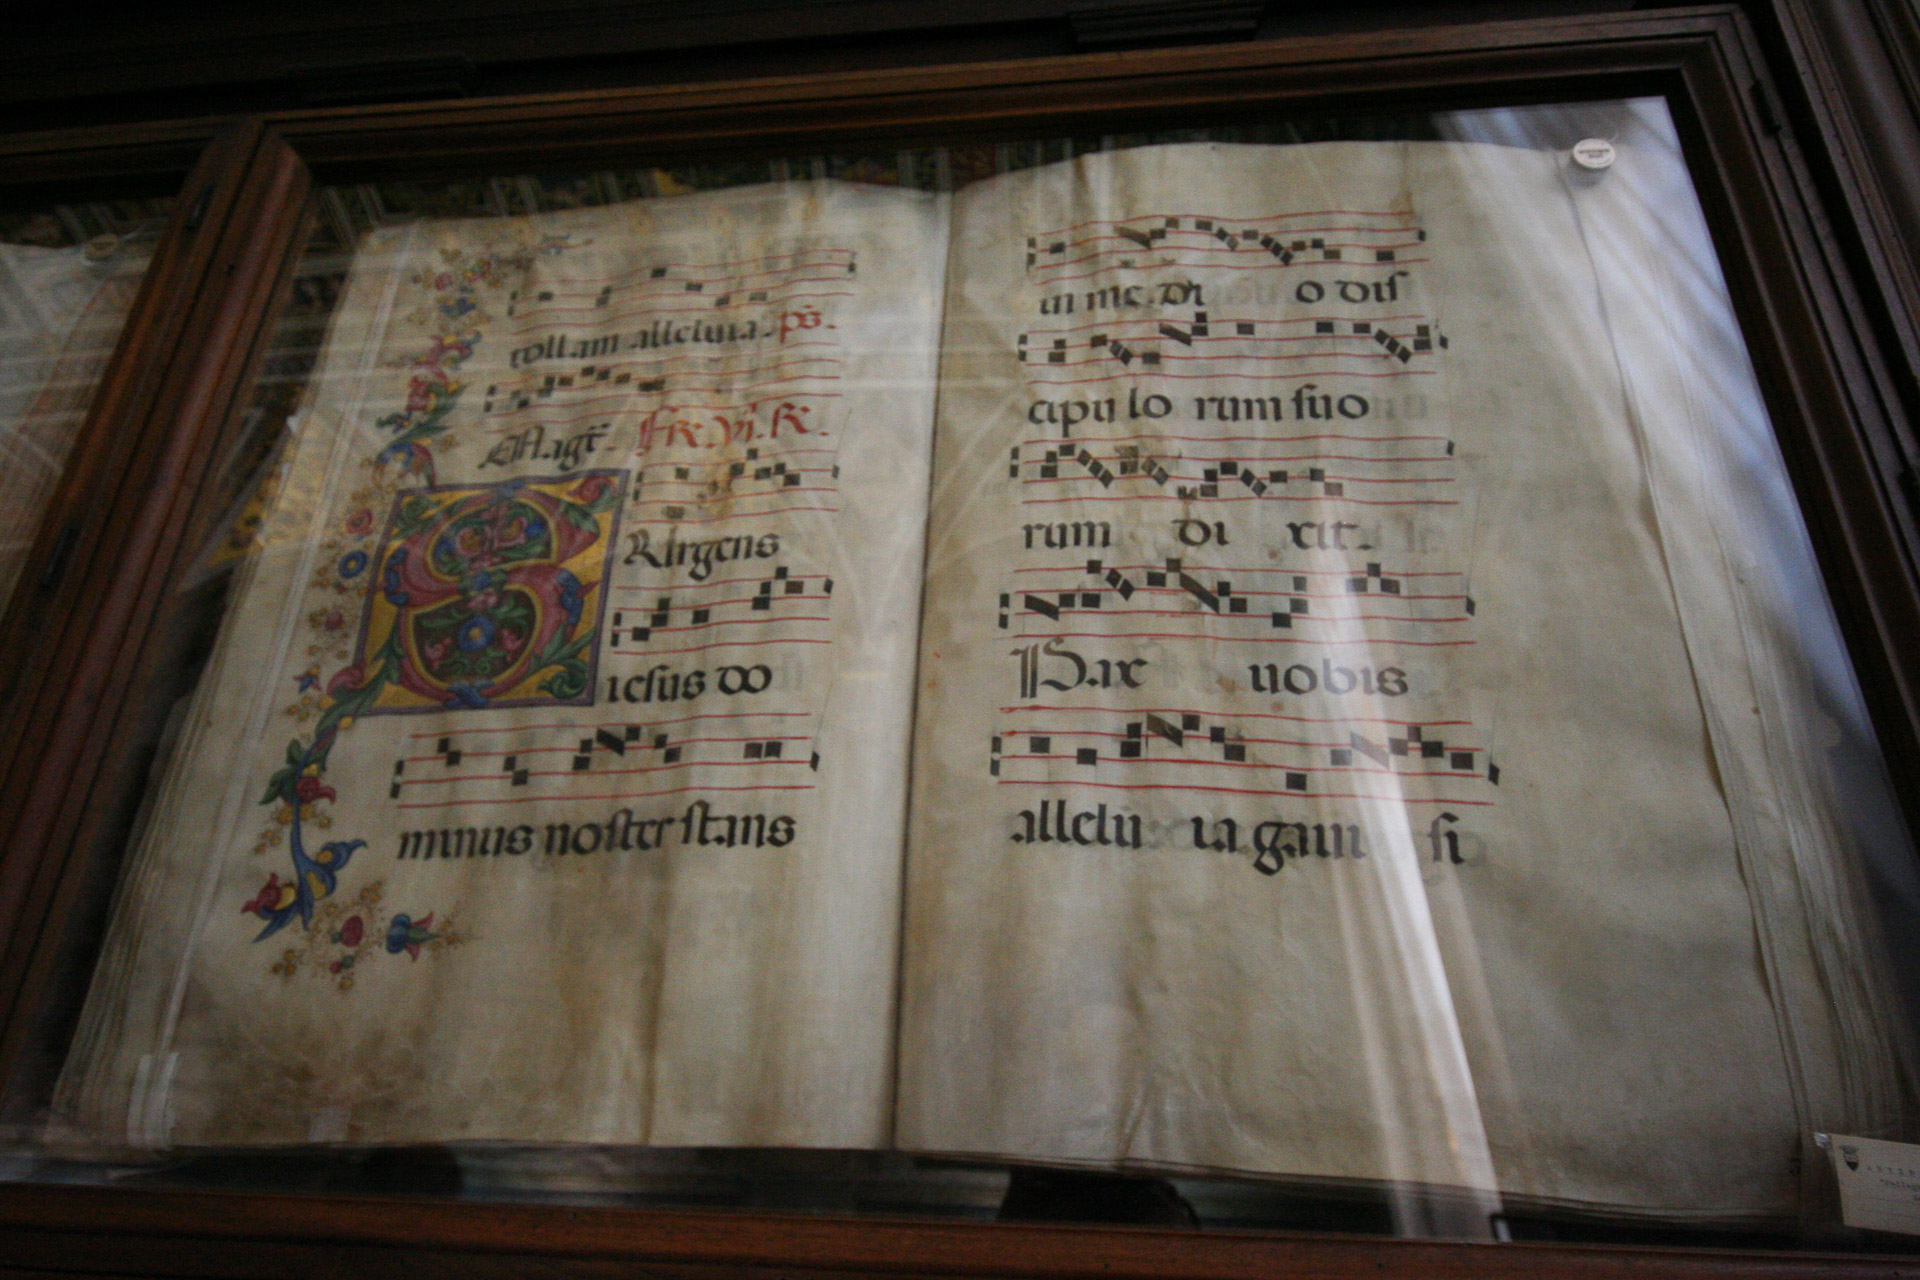 tollam alleluia. ps.
Magt. Fr. vi. R.
SURrgens
iesus do
minus noster stans
in me di o dis
cipu lo rum suo
rum di xit.
Pax uobis
allelu ia gaui si